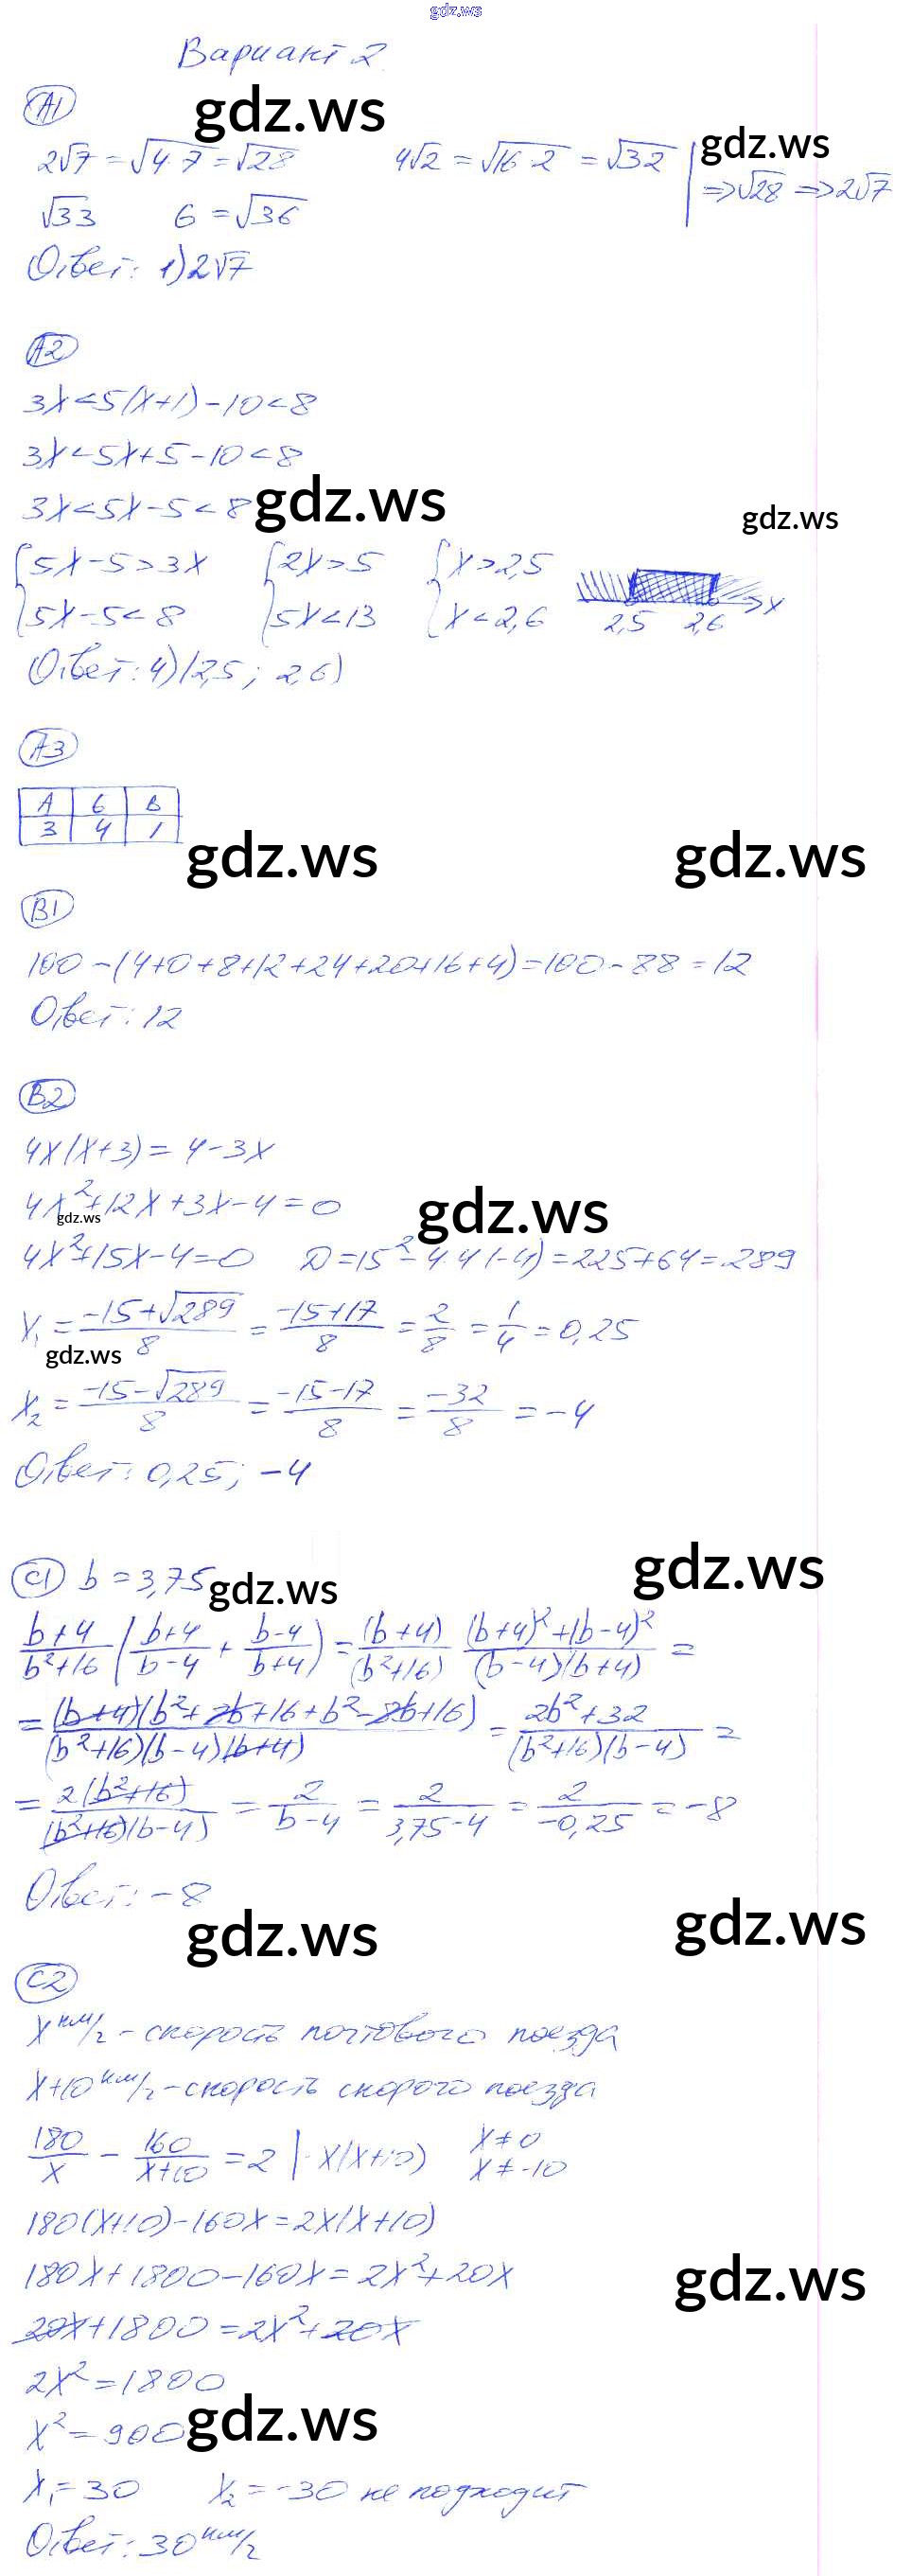 gdz.ws
Вариант 2
A1
gdz.ws
2√7 = √4·7 = √28   4√2 = √16·2 = √32 | gdz.ws
√33   6 = √36   => √28 => 2√7
Ответ: 1) 2√7
A2
3x < 5(x+1) - 10 < 8
3x < 5x + 5 - 10 < 8
3x < 5x - 5 < 8 gdz.ws gdz.ws
{5x - 5 > 3x   {2x > 5   {x > 2,5
{5x - 5 < 8   {5x < 13   {x < 2,6   2,5   2,6   x
Ответ: 4) (2,5; 2,6)
A3
А | Б | В
3 | 4 | 1
gdz.ws gdz.ws
B1
100 - (4+0+8+12+24+20+16+4) = 100 - 88 = 12
Ответ: 12
B2
4x(x+3) = 4 - 3x
4x² + 12x + 3x - 4 = 0 gdz.ws
gdz.ws
4x² + 15x - 4 = 0   D = 15² - 4·4·(-4) = 225 + 64 = 289
x₁ = (-15+√289)/8 = (-15+17)/8 = 2/8 = 1/4 = 0,25
gdz.ws
x₂ = (-15-√289)/8 = (-15-17)/8 = -32/8 = -4
Ответ: 0,25; -4
C1 b = 3,75 gdz.ws gdz.ws
(b+4)/(b²+16) ((b+4)/(b-4) + (b-4)/(b+4)) = (b+4)/(b²+16) · ((b+4)² + (b-4)²)/((b-4)(b+4)) =
= (b+4)(b² + 8b + 16 + b² - 8b + 16)/((b²+16)(b-4)(b+4)) = (2b² + 32)/((b²+16)(b-4)) =
= 2(b²+16)/((b²+16)(b-4)) = 2/(b-4) = 2/(3,75-4) = 2/(-0,25) = -8
Ответ: -8
gdz.ws gdz.ws
C2
x км/г - скорость почтового поезда
x+10 км/г - скорость скорого поезда
180/x - 160/(x+10) = 2 | · x(x+10)   x ≠ 0
x ≠ -10
180(x+10) - 160x = 2x(x+10)
180x + 1800 - 160x = 2x² + 20x gdz.ws
20x + 1800 = 2x² + 20x
2x² = 1800
x² = 900 gdz.ws
x₁ = 30   x₂ = -30 не подходит
Ответ: 30 км/г